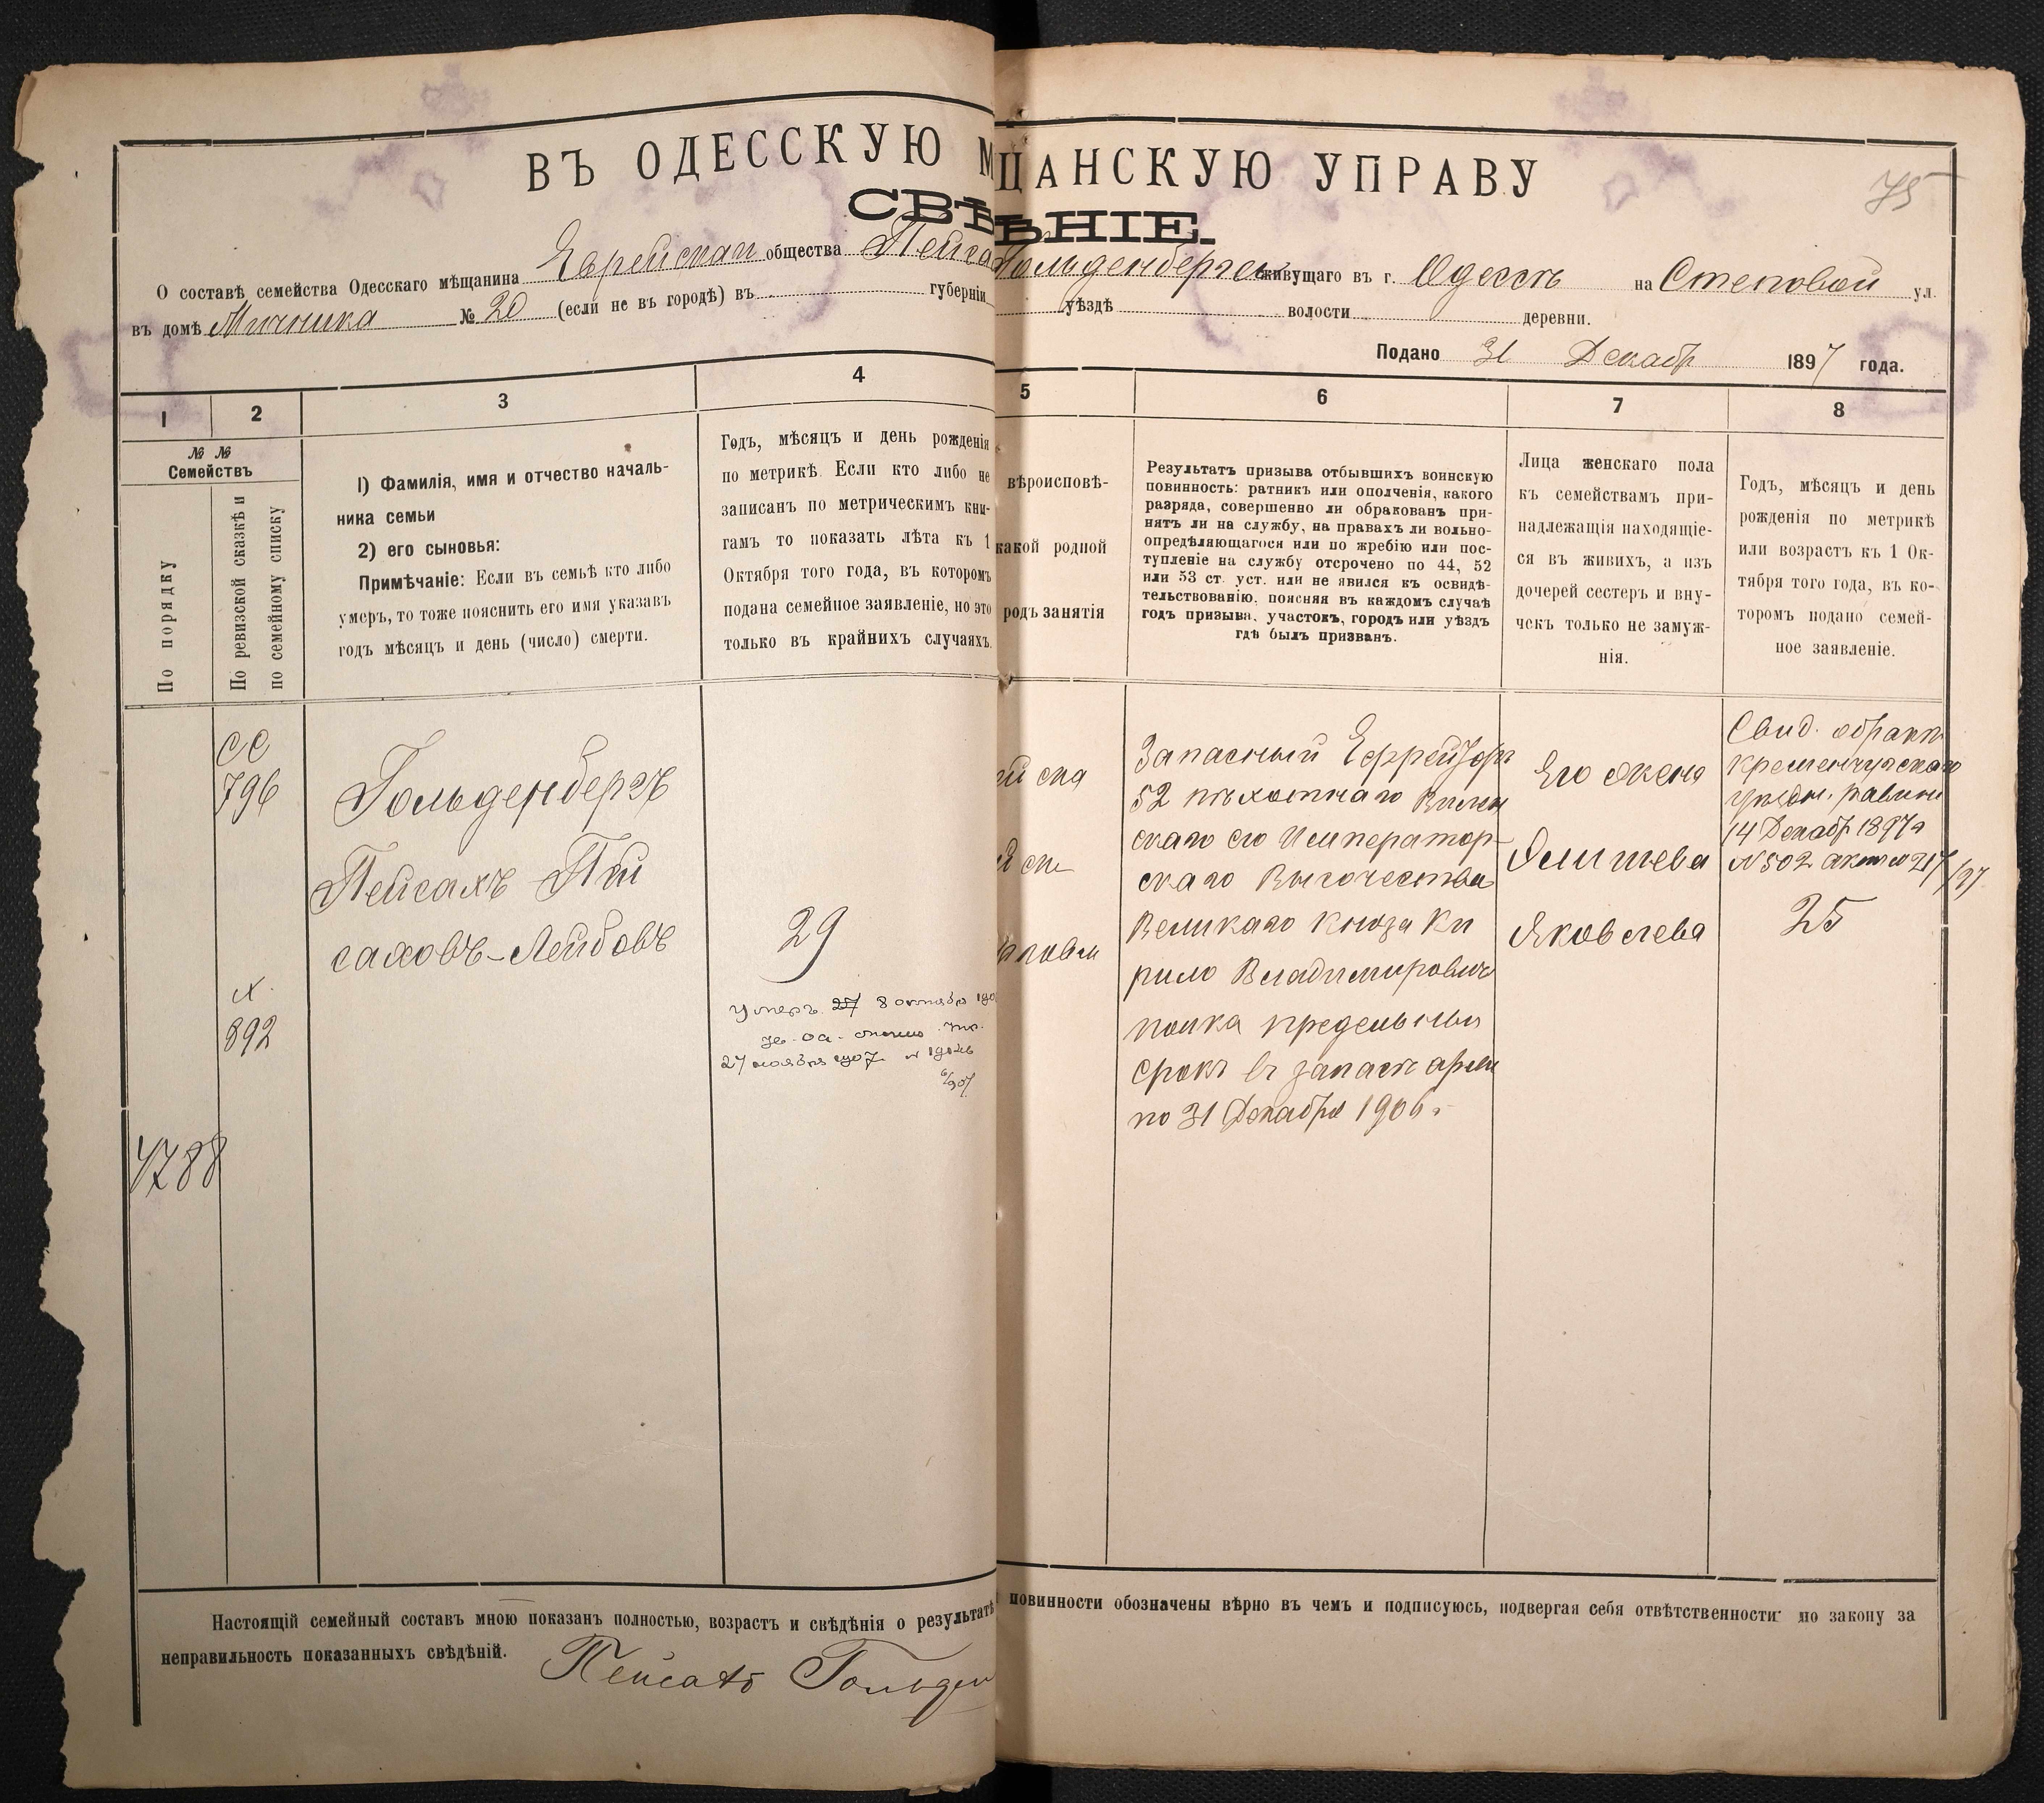 75
ВЪ ОДЕССКУЮ М ЩАНСКУЮ УПРАВУ
СВѢ ѢНІЕ.
О составѣ семейства Одесскаго мѣщанина Еврейскаго общества Пейса Гольденбергъ живущаго въ г. Одессѣ на Степовой ул.
въ домѣ Мичника № 20 (если не въ городѣ) въ губерніи уѣздѣ волости деревни.
Подано 31 Декабр 1897 года.
1 2 3 4 5 6 7 8
№ №
Семействъ
По порядку
По ревизской сказкѣ и
по семейному списку
1) Фамилія, имя и отчество началь-
ника семьи
2) его сыновья:
Примѣчаніе: Если въ семьѣ кто либо
умеръ, то тоже пояснить его имя указавъ
годъ мѣсяцъ и день (число) смерти.
Годъ, мѣсяцъ и день рожденія
по метрикѣ. Если кто либо не
записанъ по метрическимъ кни-
гамъ то показать лѣта къ 1
Октября того года, въ которомъ
подана семейное заявленіе, но это
только въ крайнихъ случаяхъ.
вѣроисповѣ-
какой родной
родъ занятія
Результатъ призыва отбывшихъ воинскую
повинность: ратникъ или ополченія, какого
разряда, совершенно ли обракованъ при-
нятъ ли на службу, на правахъ ли вольно-
опредѣляющагося или по жребію или пос-
тупленіе на службу отсрочено по 44, 52
или 53 ст. уст. или не явился къ освидѣ-
тельствованію, поясняя въ каждомъ случаѣ
годъ призыва, участокъ, городъ или уѣздъ
гдѣ былъ призванъ.
Лица женскаго пола
къ семействамъ при-
надлежащія находящіе-
ся въ живихъ, а изъ
дочерей сестеръ и вну-
чекъ только не замуж-
нія.
Годъ, мѣсяцъ и день
рожденія по метрикѣ
или возрастъ къ 1 Ок-
тября того года, въ ко-
торомъ подано семей-
ное заявленіе.
СС
796
Х.
892
4788
Гольденбергъ
Пейсахъ Пей
саховъ-Лейбовъ
29
Умеръ 27 8 октября
27 ноября 1907
6/907
Запасный Ефрейторъ
52 пѣхотнаго Вилен
скаго его Император-
скаго Высочества
Великаго Князя Ки
рило Владимировичъ
полка предельный
срокъ въ запасѣ арміи
по 31 Декабря 1906 г.
Его жена
Элишева
Яковлева
Свид. о бракѣ
Кременчугскаго
уѣздн. равина
14 Декабр 1897 г
№ 502 акт № 217/97
25
Настоящій семейный составъ мною показанъ полностью, возрастъ и свѣдѣнія о результатѣ повинности обозначены вѣрно въ чемъ и подписуюсь, подвергая себя отвѣтственности по закону за
неправильность показанныхъ свѣдѣній. Пейсахъ Гольден